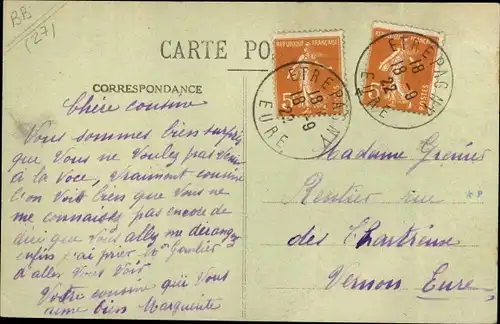 BB
(27)
CARTE PO
CORRESPONDANCE
REPUBLIQUE FRANÇAISE
5
POSTES
ETREPAGNY
18
18-9
22
EURE
ETREPAGNY
18
18-9
22
EURE
Chère cousine
Vous sommes bien surpris
que Vous ne Voulez pas Venir
à la Voce, Vraiment cousine
l'on Voit bien que Vous ne
me connaiss pas encore de
dire que Vous alley me déranger
enfin j'ai prier Mr Goulier
d'aller Vous Voir
Votre cousine qui Vous
aime bien Marguerite
Madame Grenier
Rentier rue
des Chartreux
Vernon Eure
*P